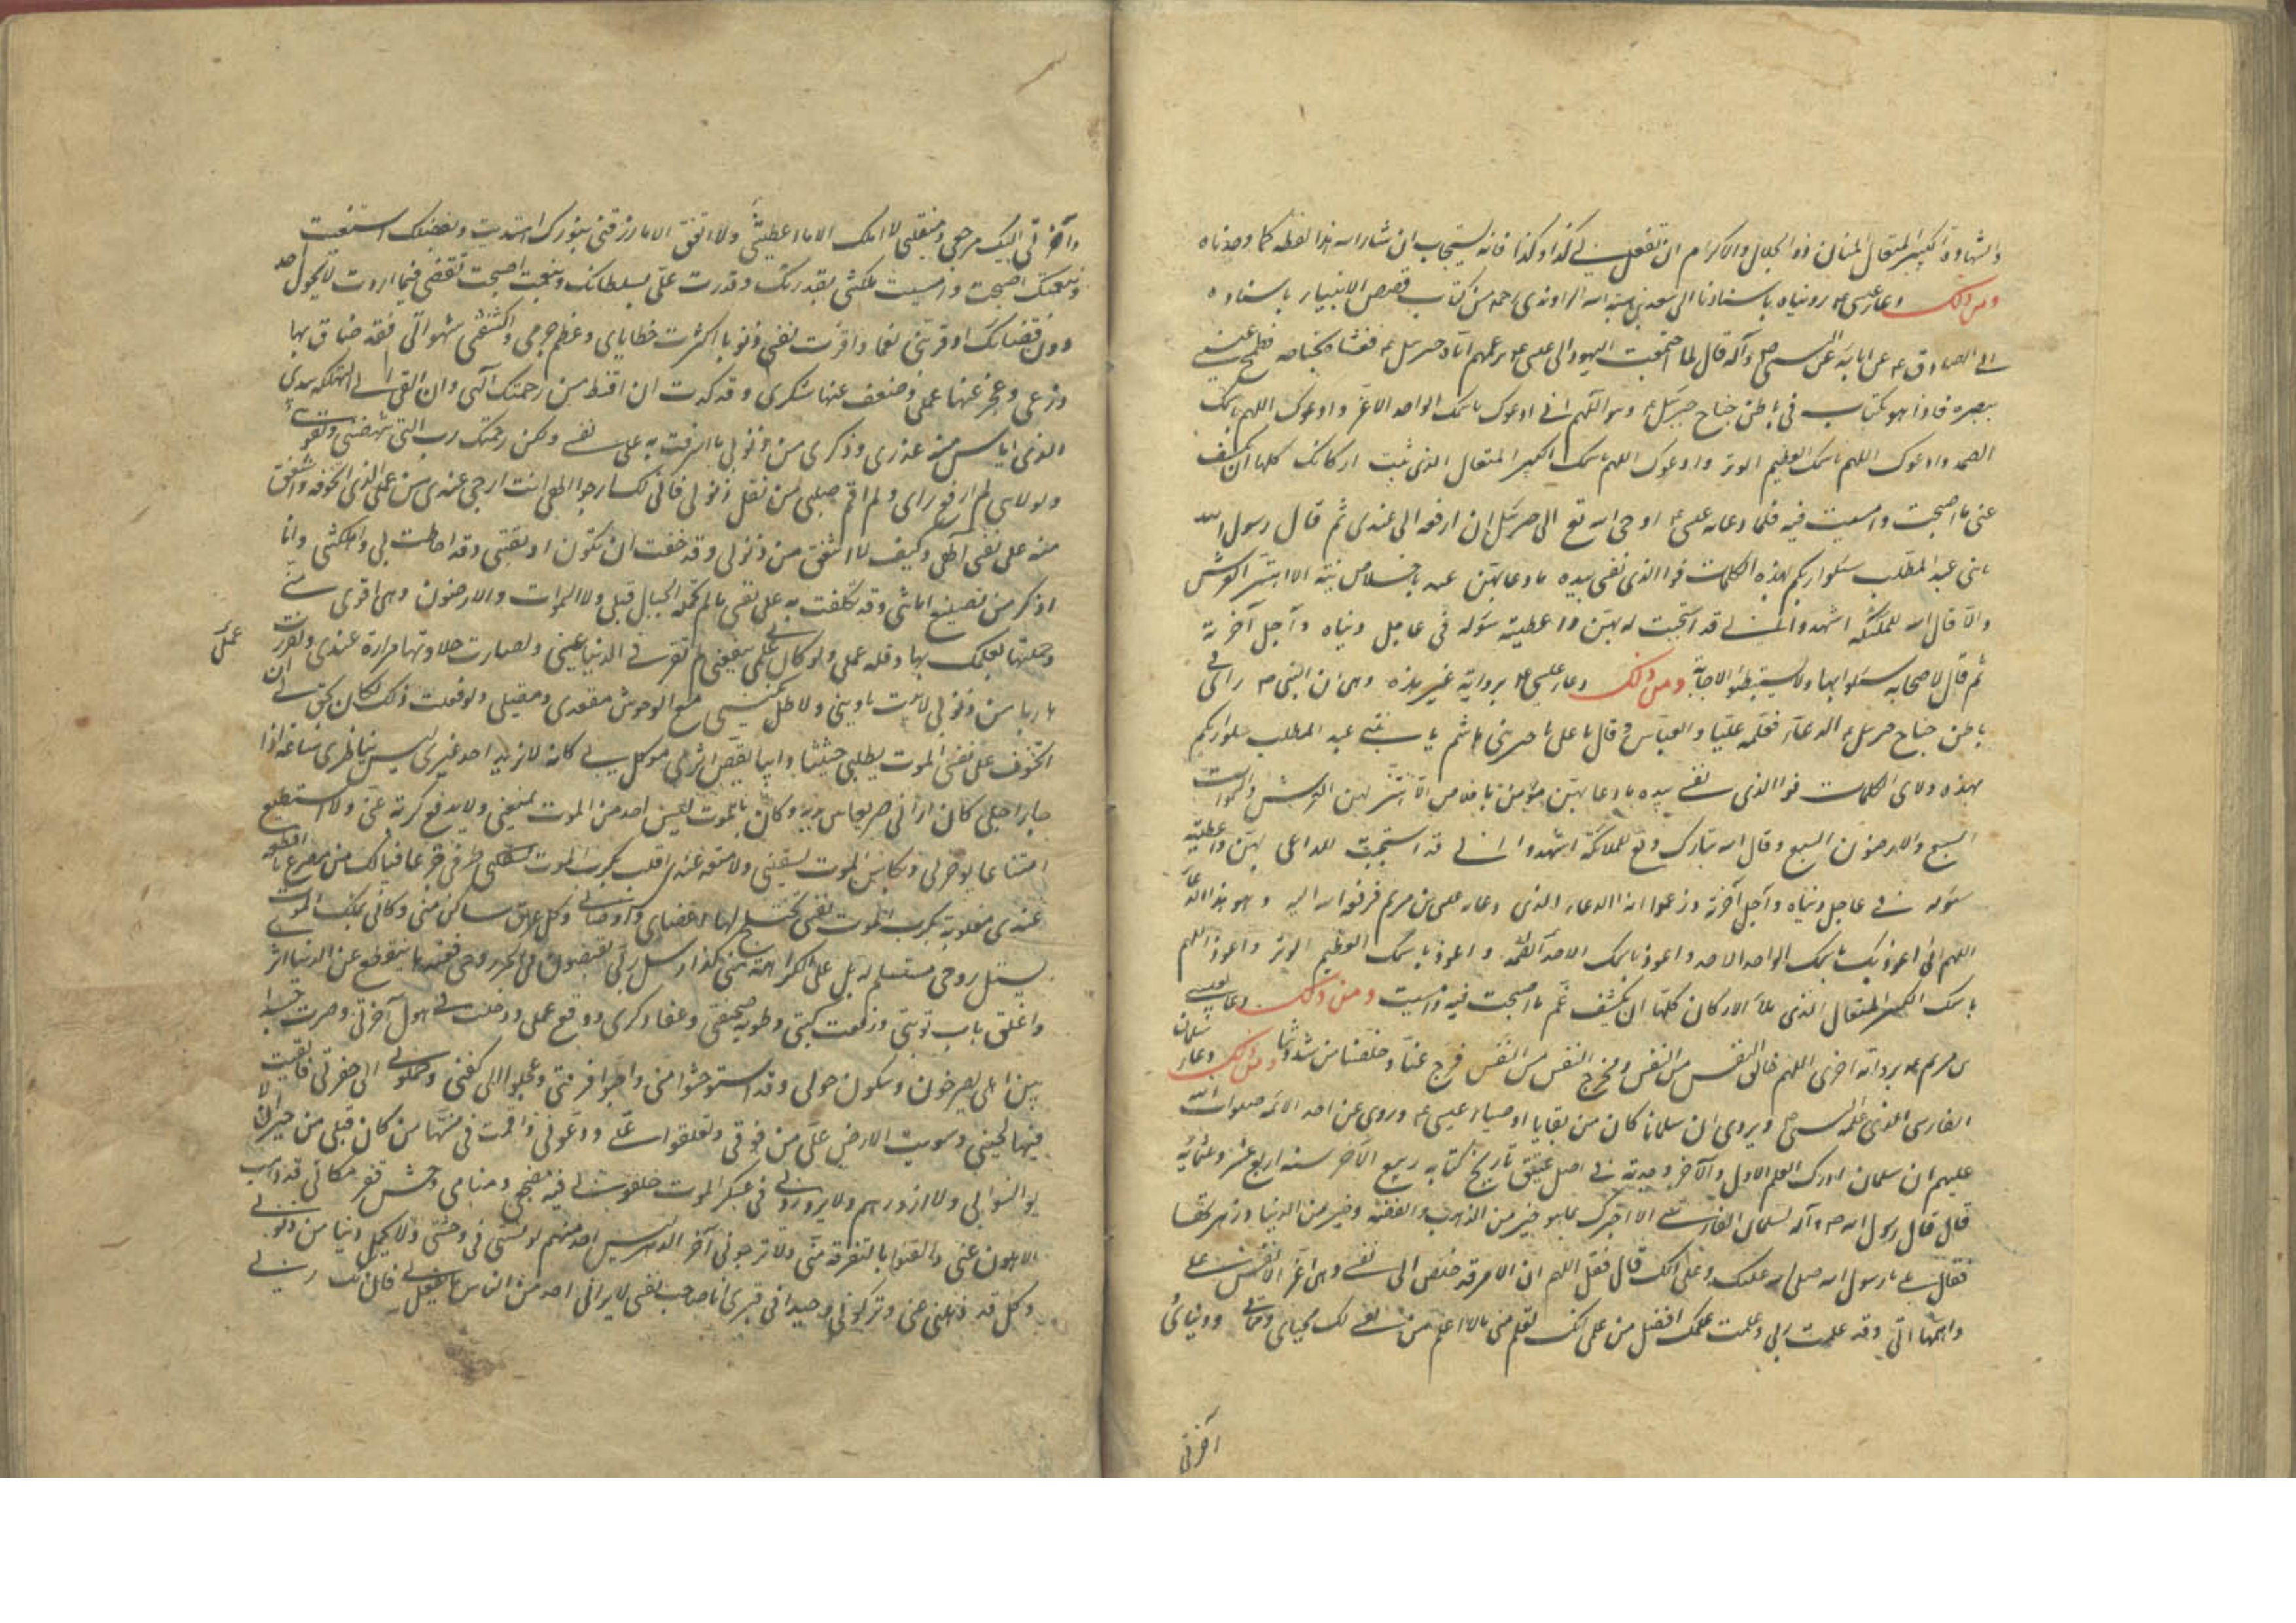 والشهادة الكبير المتعال المنان ذو الجلال والاكرام ان تفعل بي كذا وكذا فانه يستجاب ان شاء الله هذا لفظه كما وجدناه
ومن ذلك دعاء عيسى ع رويناه باسنادنا الى سعيد بن هبة الله الراوندي رحمه من كتاب قصص الانبياء باسناده
الى الصادق ع عن ابائه عن النبي ص وآله قال لما اجتمعت اليهود الى عيسى ع بزعمهم اتاه جبرئيل ع فغشاه بجناحه فطمح عيسى
ببصره فاذا هو بكتاب في باطن جناح جبرئيل ع وهو اللهم اني ادعوك باسمك الواحد الاعز وادعوك اللهم باسمك
الصمد وادعوك اللهم باسمك العظيم الوتر وادعوك اللهم باسمك الكبير المتعال الذي ثبت اركانك كلها ان تكشف
عني ما اصبحت وامسيت فيه فلما دعا به عيسى ع اوحى الله تع الى جبرئيل ان ارفعه الى عندي ثم قال رسول الله
يا بني عبد المطلب سلوا ربكم بهذه الكلمات فوالذي نفسي بيده ما دعا بهن عبد باخلاص نية الا اهتز العرش
والا قال الله للملئكة اشهدوا اني قد استجبت له بهن واعطيته سؤله في عاجل دنياه وآجل آخرته
ثم قال لاصحابه سلوا بها ولا يستبطئوا الاجابة ومن ذلك دعاء عيسى ع برواية غير هذه وهي ان النبي ص راى في
باطن جناح جبرئيل ع الدعاء فعلمه عليا والعباس وقال يا على يا خير بني هاشم يا بني عبد المطلب سلوا ربكم
بهذه ولاى الكلمات فوالذي نفسي بيده ما دعا بهن مؤمن باخلاص الا اهتز لهن العرش والسموات
السبع والارضون السبع وقال الله تبارك وتع للملائكة اشهدوا اني قد استجبت للداعي بهن واعطيته
سؤله في عاجل دنياه وآجل آخرته وزعموا انه الدعاء الذي دعا به عيسى بن مريم فرفعه الله اليه وهو هذا الدعاء
اللهم اني اعوذ بك باسمك الواحد الاحد واعوذ باسمك الاحد الصمد واعوذ باسمك العظيم الوتر واعوذ اللهم
باسمك الكبير المتعال الذي ملأ الاركان كلها ان تكشف غم ما اصبحت فيه وامسيت ومن ذلك دعاء عيسى
بن مريم ع برواية اخرى اللهم خالق النفس من النفس ومخرج النفس من النفس فرج عنا وخلصنا من شدتنا ومن ذلك دعاء سلمان
الفارسي الذي علمه النبي ص ويروى ان سلمانا كان من بقايا اوصياء عيسى ع وروى عن احد الائمة صلوات الله
عليهم ان سلمان ادرك العلم الاول والآخر وجدته في اصل عتيق تاريخ كتابه ربيع الآخر سنة اربع عشر وثلثمائة
قال قال رسول الله ص وآله لسلمان الفارسي الا اخبرك بما هو خير من الذهب والفضة وخير من الدنيا وزهرتها
فقال بلى يا رسول الله صلى الله عليك وعلى الك قال فقل اللهم ان الامر قد خلص الى نفسي وهي اعز الانفس علي
واهمها الي وقد علمت ربي وعلمت علمك افضل من علمي انك تعلم مني ما لا اعلم من نفسي لك محياي ومماتي ودنياي
آخرتي
وآخرتي اليك مرجعي ومنقلبي لا املك الا ما اعطيتني ولا انفق الا ما رزقتني بنورك اهتديت وبفضلك استغنيت
وبنعمتك اصبحت وامسيت ملكتني بقدرتك وقدرت علي بسلطانك تقضي فيما اردت لا يحول احد
دون قضائك اوقرتني نعما واوقرت نفسي ذنوبا كثرت خطاياي وعظم جرمي واكتنفتني شهواتي فقد ضاق بها
ذرعي وعجز عنها عملي وضعف عنها شكري وقد كدت ان اقنط من رحمتك الهي وان القى الى التهلكة بيدي
الذي ايأس منه عذري وذكري من ذنوبي ما اسرفت به على نفسي ولكن رحمتك رب التي تنهضني وتقويني
ولولا هي لم ارفع راسي ولم اقم صلبي من ثقل ذنوبي فاني لك ارجو الهي انت ارجى عندي من عملي الذي اتخوفه واشفق
منه على نفسي الهي وكيف لا اشفق من ذنوبي وقد خفت ان تكون اوبقتني وقد احاطت بي واهلكتني وانا
اذكر من تضييع امانتي وقد تكلفت به على نفسي ما لم تحمله الجبال قبلي ولا السموات والارضون وهي اقوى مني
وحملتها بعلمك بها وقلة عملي ولو كان لي علمي ينفعني لم تقر في الدنيا عيني ولصارت حلاوتها مرارة عندي ولفررت
عملى
هاربا من ذنوبي لا بيت ياويني ولا ظل يكنني مع الوحوش مقعدي ومقيلي ولو فعلت ذلك لكان يحق لي ان
اتخوف على نفسي الموت يطلبني حثيثا دائبا يقص اثري موكل بي كانه لا يريد احد غيري ليس بناظري ساعة اذا
جاء اجلي كان اراني صريعا بين يديه وكان بالموت ليس احد من الموت يمنعني ولا يدفع كربه عني ولا استطيع
امتناعا يؤخرني وبكاس الموت يسقيني ولا منعة عندي اقلب بكرب الموت طرفي جزعا فيالك من مصرع ما افظعه
عندي مغلوبة بكرب الموت نفسي تختلج لها اعضائي واوصالي وكل عرق ساكن مني وكاني بملك الموت
يستل روحي مستسلم له بل على الكراهة مني كذا رسل ربي تقبضون في الحر روحي فعندها ينقطع عن الدنيا اثري
واغلق باب توبتي ورفعت كتبي وطويت صحيفتي وعفا ذكري ورفع عملي ودخلت في هول آخرتي وصرت جسدا
بين اهلي يصرخون ويبكون حولي وقد استوحشوا مني واحبوا فرقتي وعجلوا الى كفني وحملوني الى حفرتي فالقيت
فيها لجنبي وسويت الارض علي من فوقي وتعلقوا علي وودعوني واقمت في منتهى من كان قبلي من جيران لا
يؤانسوني ولا ازورهم ولا يزوروني في عسكر الموت خلفوني فيه مضجعي ومنامي وحش قفر مكاني قد ذهب
الاهلون عني وايقنوا بالتفرقة مني ولا ترجوني آخر الدهر ليس احد منهم يؤنسني في وحشتي ولا يحمل ذنبا من ذنوبي
وكل قد ذهل عني وتركوني وحيدا في قبري انا صاحب نفسي لا يراني احد من الناس ما يفعل بي فان تك ربي